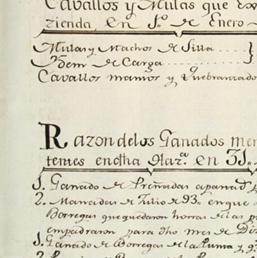 Cavallos y Mulas que
zienda en 1º. de Enero
Mulas y Machos de Silla
Ydem de Carga
Cavallos mansos y quebrantados
Razon delos Ganados
tentes en dha Haz.ª en 31
1. Ganado de Preñadas aparta
2. Manadas de Julio de 93. en que
Borregas que quedaron horras de las
empadraron para dho mes de
1. Ganado de Borregas de la Pluma y